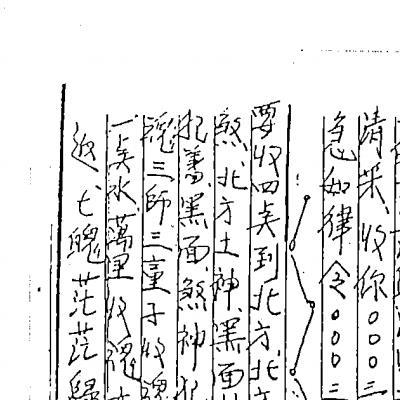 清茶、收你○○○三
急如律令○○○三
要收四点到北方、北方
煞、北方土神、黑面
犯著黑面、煞神犯
魂三師三童子收魂
一点水萬里收魂
返七魄茫茫歸